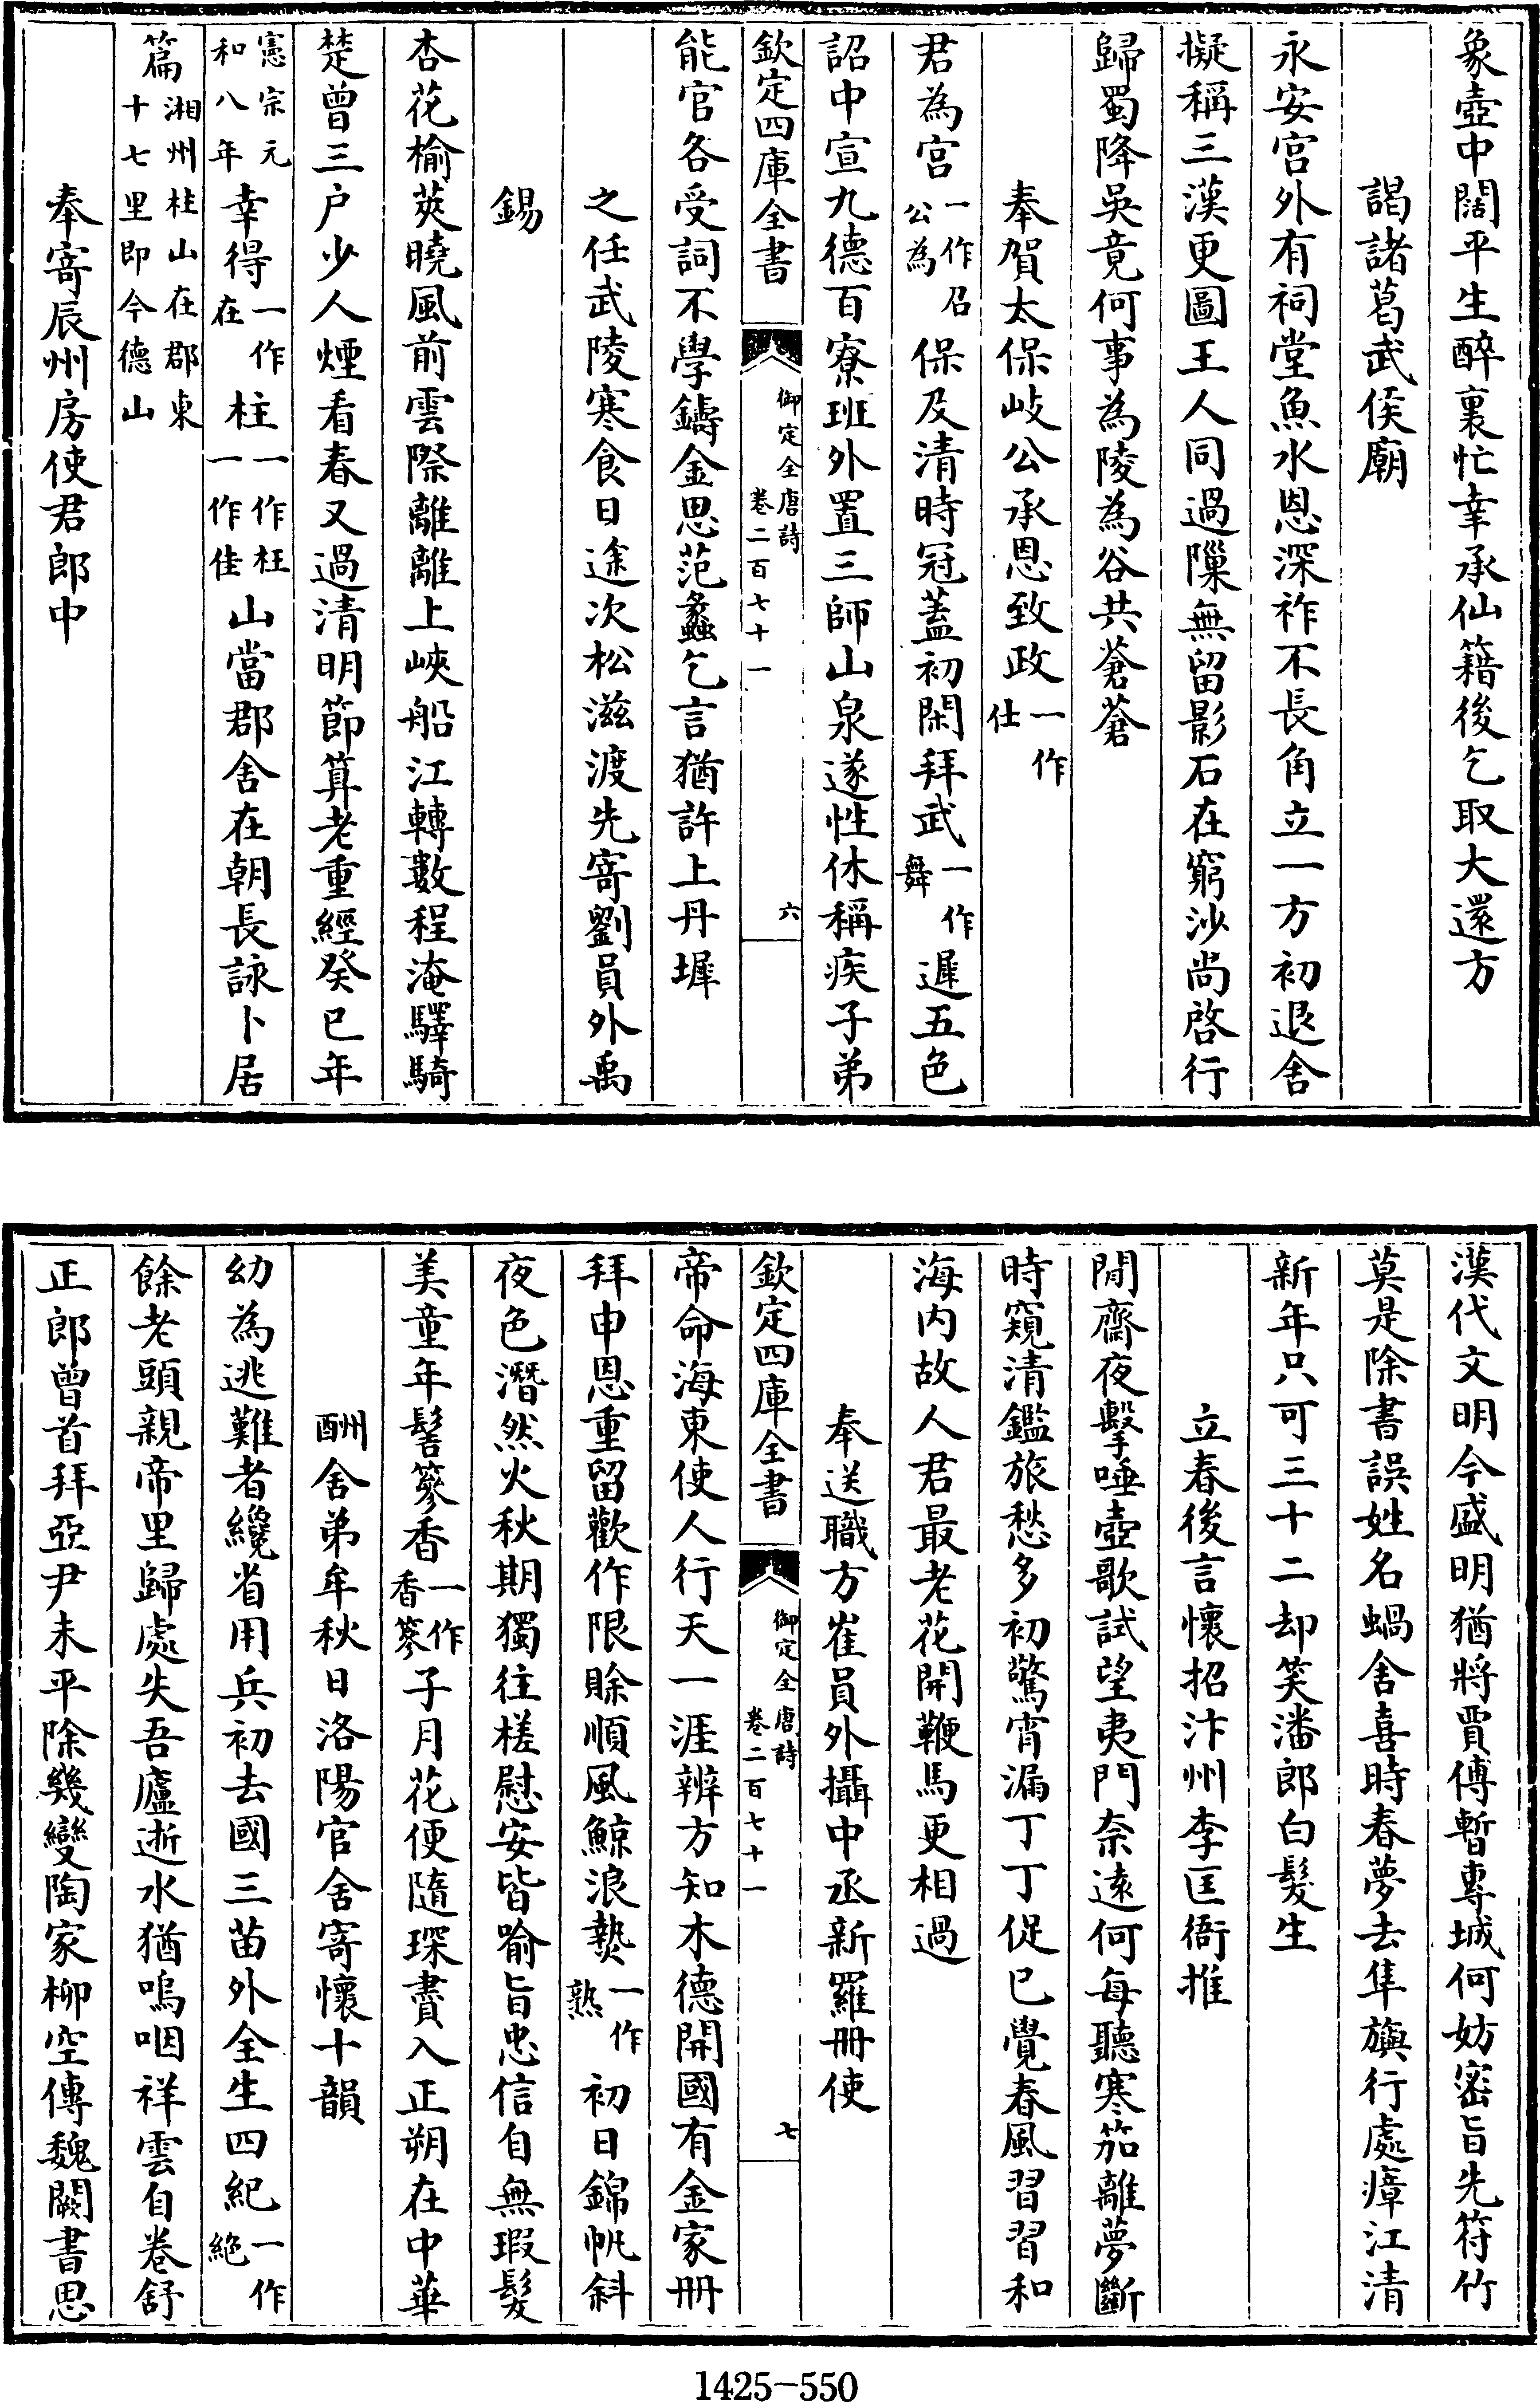 象壺中闊平生醉裏忙幸承仙籍後乞取大還方
謁諸葛武侯廟
永安宮外有祠堂魚水恩深祚不長角立一方初退舍
擬稱三漢更圖王人同過隟無留影石在窮沙尚啓行
歸蜀降吳竟何事為陵為谷共蒼蒼
奉賀太保岐公承恩致政一作仕
君為宮一作召公為保及清時冠蓋初閑拜武一作舞遲五色
詔中宣九德百寮班外置三師山泉遂性休稱疾子弟
欽定四庫全書
御定全唐詩
卷二百七十一
六
能官各受詞不學鑄金思范蠡乞言猶許上丹墀
之任武陵寒食日途次松滋渡先寄劉員外禹
錫
杏花榆莢曉風前雲際離離上峽船江轉數程淹驛騎
楚曾三户少人煙看春又過清明節算老重經癸巳年
憲宗元和八年幸得一作在柱一作枉一作佳山當郡舍在朝長詠卜居
篇湘州柱山在郡東十七里即今德山
奉寄辰州房使君郎中
漢代文明今盛明猶將賈傅暫專城何妨密旨先符竹
莫是除書誤姓名蝸舍喜時春夢去隼旟行處瘴江清
新年只可三十二却笑潘郎白髮生
立春後言懷招汴州李匡衙推
閒齋夜擊唾壺歌試望夷門奈遠何每聽寒笳離夢斷
時窺清鑑旅愁多初驚宵漏丁丁促已覺春風習習和
海内故人君最老花開鞭馬更相過
奉送職方崔員外攝中丞新羅冊使
欽定四庫全書
御定全唐詩
卷二百七十一
七
帝命海東使人行天一涯辨方知木德開國有金家冊
拜申恩重留歡作限賒順風鯨浪𤍠一作熟初日錦帆斜
夜色潛然火秋期獨往槎慰安皆喻旨忠信自無瑕髮
美童年髻簝香一作香簝子月花便隨琛賮入正朔在中華
酬舍弟牟秋日洛陽官舍寄懷十韻
幼為逃難者纔省用兵初去國三苗外全生四紀一作絶
餘老頭親帝里歸處失吾廬逝水猶嗚咽祥雲自卷舒
正郎曾首拜亞尹未平除幾變陶家柳空傳魏闕書思
1425-550